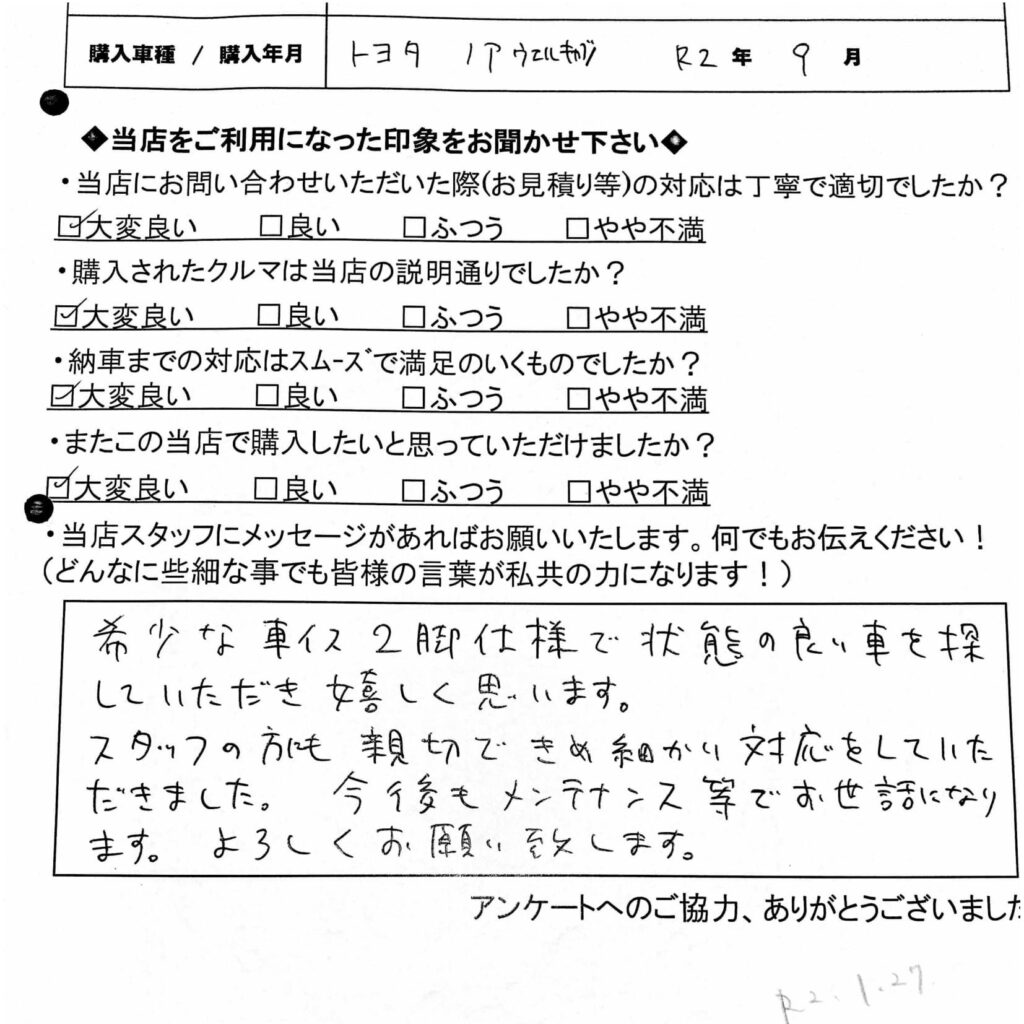 購入車種 / 購入年月 トヨタ ノア ウェルキャブ R2 年 9 月
◆当店をご利用になった印象をお聞かせ下さい◆
・当店にお問い合わせいただいた際(お見積り等)の対応は丁寧で適切でしたか？
☑大変良い □良い □ふつう □やや不満
・購入されたクルマは当店の説明通りでしたか？
☑大変良い □良い □ふつう □やや不満
・納車までの対応はスムーズで満足のいくものでしたか？
☑大変良い □良い □ふつう □やや不満
・またこの当店で購入したいと思っていただけましたか？
☑大変良い □良い □ふつう □やや不満
・当店スタッフにメッセージがあればお願いいたします。何でもお伝えください！
（どんなに些細な事でも皆様の言葉が私共の力になります！）
希少な車イス2脚仕様で状態の良い車を探
していただき嬉しく思います。
スタッフの方にも親切できめ細かい対応をしていた
だきました。 今後もメンテナンス等でお世話になり
ます。 よろしくお願い致します。
アンケートへのご協力、ありがとうございました
R2.1.27.